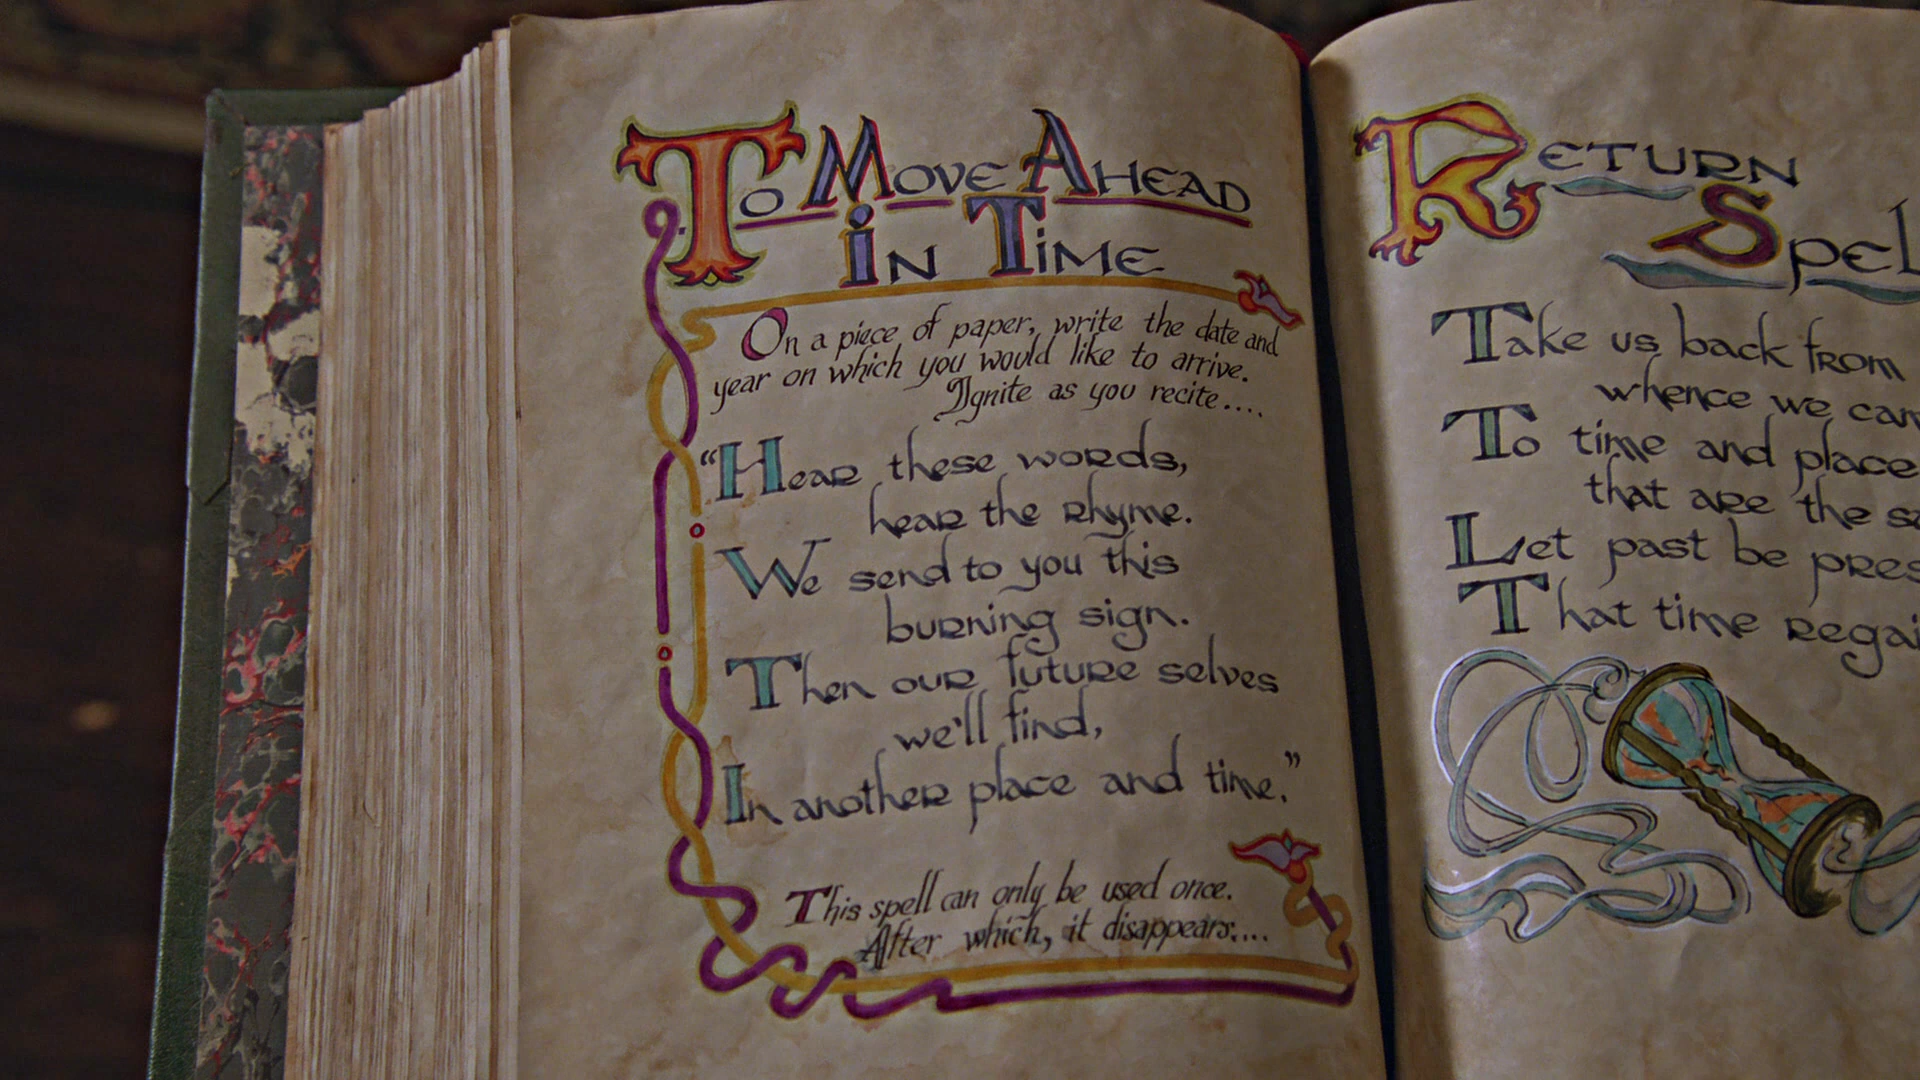 To Move Ahead
in Time
On a piece of paper, write the date and
year on which you would like to arrive.
Ignite as you recite....
"Hear these words,
hear the rhyme.
We send to you this
burning sign.
Then our future selves
we'll find,
In another place and time."
This spell can only be used once.
After which, it disappears....
Return
Take us back from
whence we
To time and place
that are the
Let past be
That time